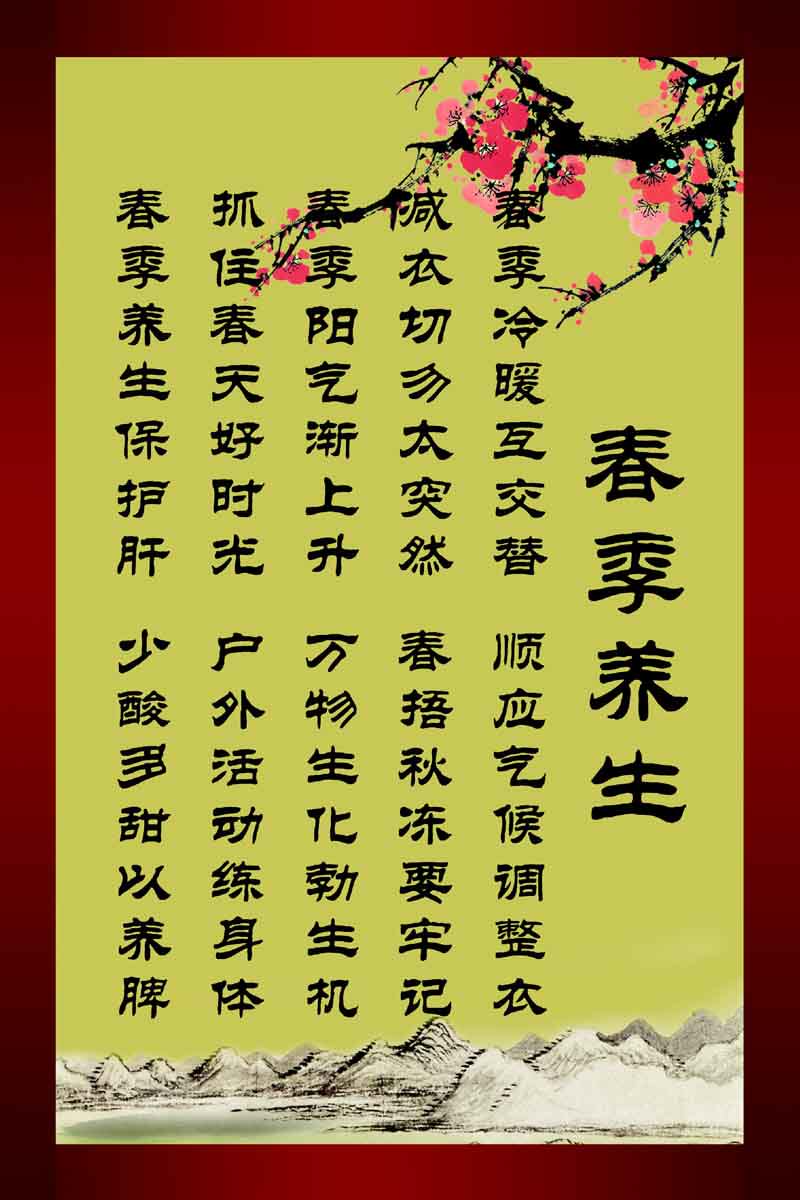 春季养生
春季冷暖互交替 顺应气候调整衣
减衣切勿太突然 春捂秋冻要牢记
春季阳气渐上升 万物生化勃生机
抓住春天好时光 户外活动练身体
春季养生保护肝 少酸多甜以养脾